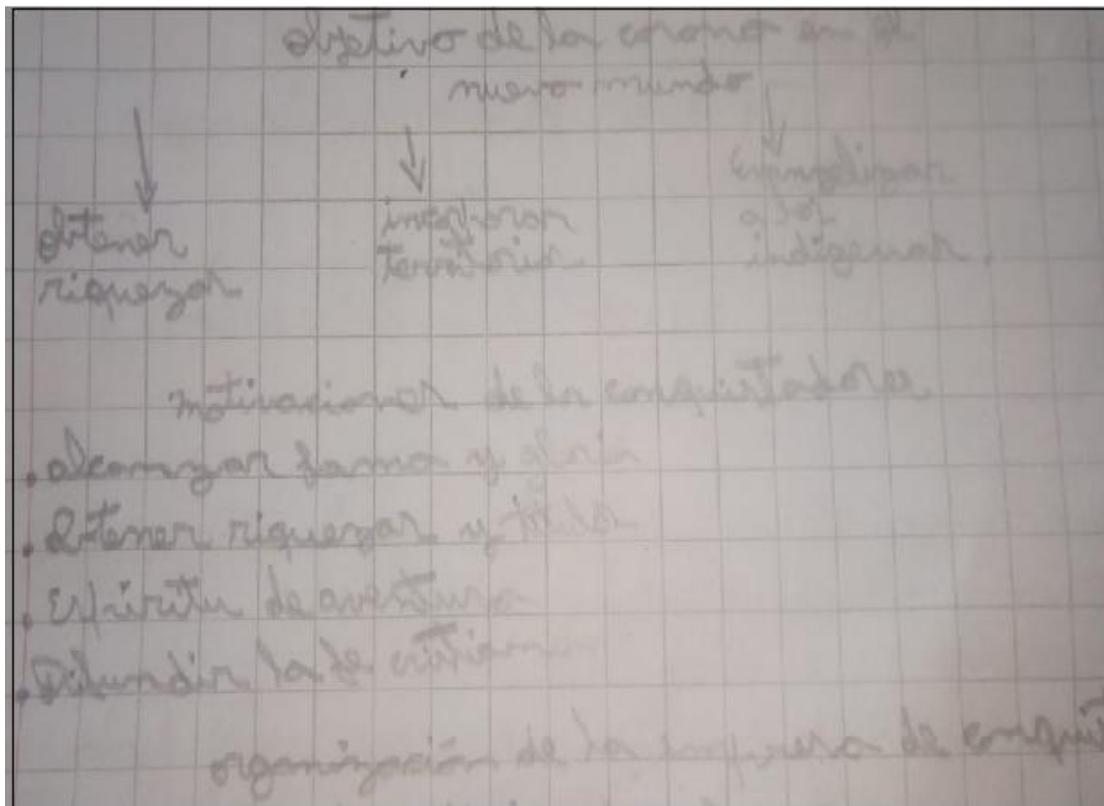 objetivo de la corona en el
nuevo mundo
obtener
riquezas
incorporar
territorios
evangelizar
a los
indígenas.
motivaciones de los conquistadores
. alcanzar fama y gloria
. obtener riquezas y títulos
. espíritu de aventura
. Difundir la fe cristiana
organización de la empresa de